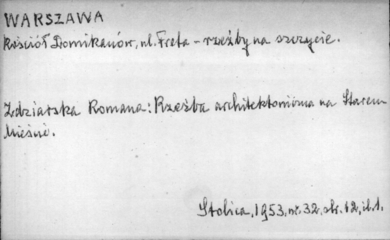 WARSZAWA
Kościół Dominikanów, ul. Freta - rzeźby na szczycie.
Zdziarska Romana: Rzeźba architektoniczna na Starem
Mieście.
Stolica, 1953, nr. 32, str. 12, il. 1.